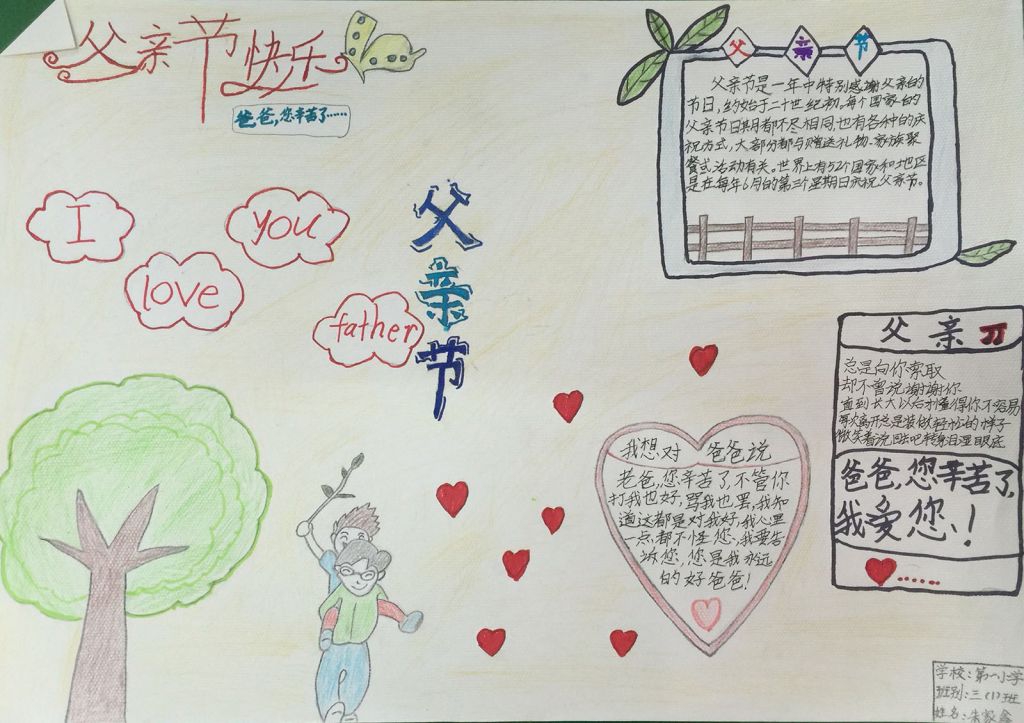 父亲节快乐
爸爸,您辛苦了……
I
love
you
father
父亲节
父亲节
父亲节是一年中特别感谢父亲的
节日,约始于二十世纪初。每个国家的
父亲节日期都不尽相同,也有各种的庆
祝方式,大部分都与赠送礼物、家族聚
餐或活动有关。世界上有52个国家和地区
是在每年6月的第三个星期日庆祝父亲节。
父亲
总是向你索取
却不曾说谢谢你
直到长大以后才懂得你不容易
每次离开总是装做轻松的样子
微笑着说回去吧转身泪湿眼底
爸爸,您辛苦了,
我爱您!
......
我想对 爸爸说
老爸,您辛苦了,不管你
打我也好,骂我也罢,我知
道这都是对我好,我心里
一点都不怪您,我要告
诉您,您是我永远
的好爸爸!
学校:第一小学
班别:三(1)班
姓名:朱